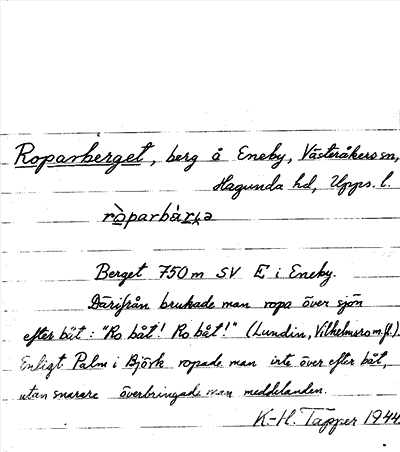 Roparberget, berg å Eneby, Västeråkers sn,
Hagunda hd, Upps. l.
ròparbàrɣə
Berget 750 m SV E i Eneby.
Därifrån brukade man ropa över sjön
efter båt: "Ro båt! Ro båt!" (Lundin, Vilhelmsro m.fl.).
Enligt Palm i Björk ropade man inte över efter båt,
utan snarare överbringade man meddelanden.
K.-H. Tapper 1944.